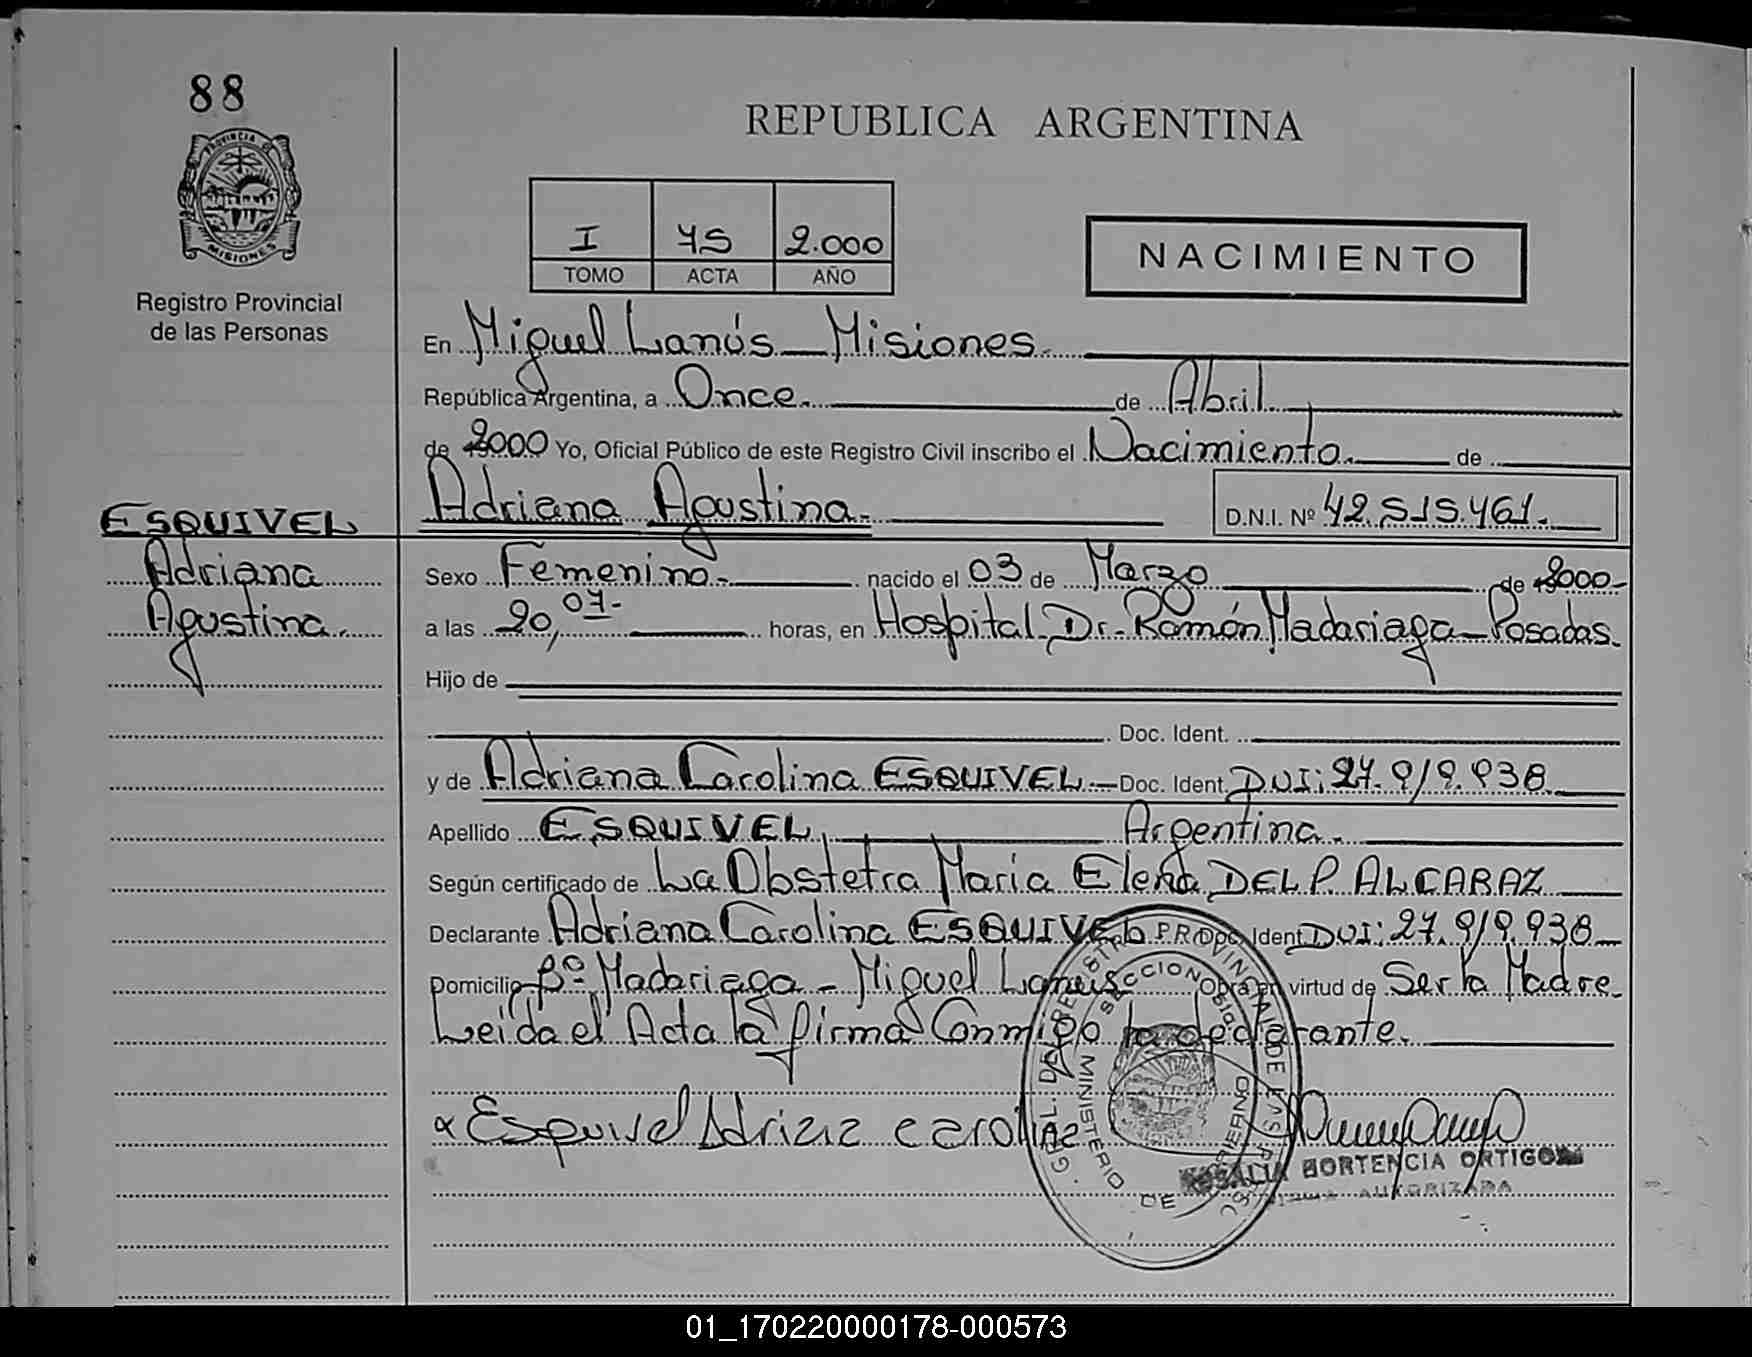 88
REPUBLICA ARGENTINA
PROVINCIA DE
MISIONES
I 45 2.000
TOMO ACTA AÑO
NACIMIENTO
Registro Provincial
de las Personas
En Miguel Lanús - Misiones.
República Argentina, a Once. de Abril,
de 2000 Yo, Oficial Público de este Registro Civil inscribo el Nacimiento. de
Adriana Agustina. D.N.I. Nº 42.515.461.
ESQUIVEL
Adriana
Agustina.
Sexo Femenino. nacido el 03 de Marzo de 2000-
a las 20,07- horas, en Hospital Dr. Ramón Madariaga - Posadas.
Hijo de
Doc. Ident.
y de Adriana Carolina ESQUIVEL.- Doc. Ident. DUI: 27.919.938.
Apellido ESQUIVEL, Argentina.
Según certificado de La Obstetra Maria Elena DELP. ALCARAZ
Declarante Adriana Carolina ESQUIVEL Doc. Ident. DUI: 27.919.938-
Domicilio Bº Madariaga - Miguel Lanus Obra en virtud de Ser la Madre.
Leida el Acta la firma Conmigo la declarante.
Esquivel Adriana carolina
MINISTERIO DE GOBIERNO
HORTENCIA ORTIGOZA
AUTORIZADA
01_170220000178-000573